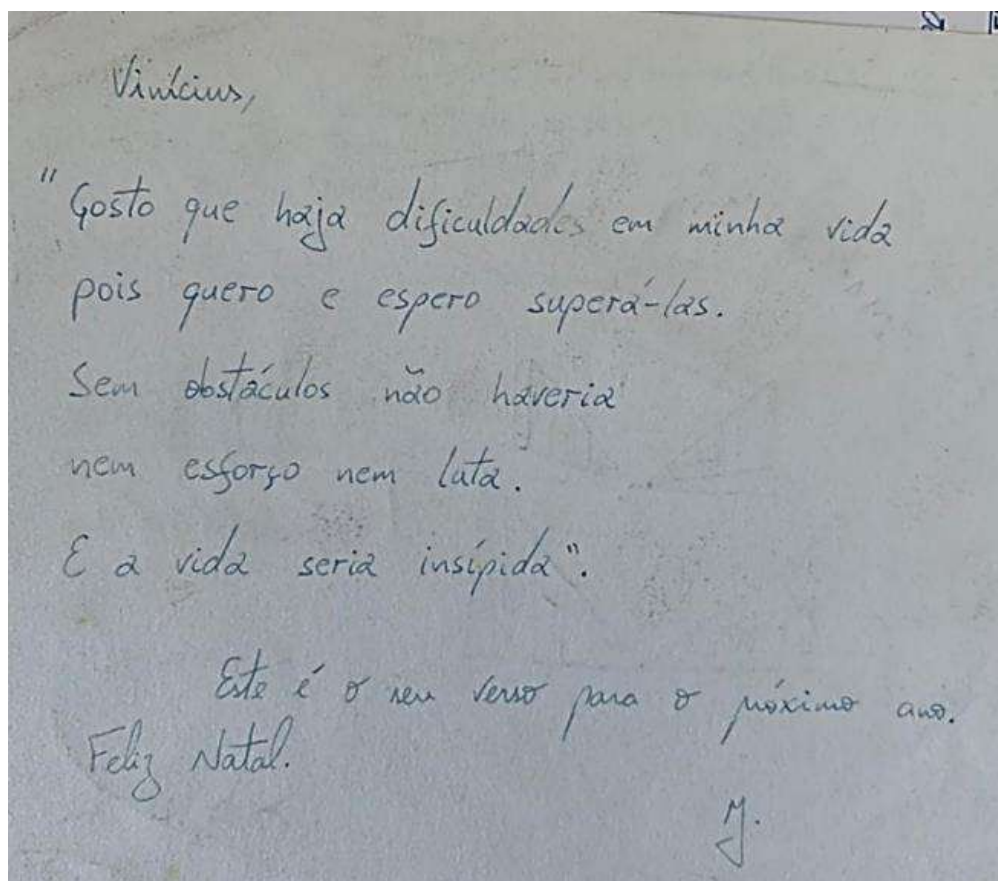 Vinícius,
"Gosto que haja dificuldades em minha vida
pois quero e espero superá-las.
Sem obstáculos não haveria
nem esforço nem luta.
E a vida seria insípida".
Este é o seu verso para o próximo ano.
Feliz Natal.